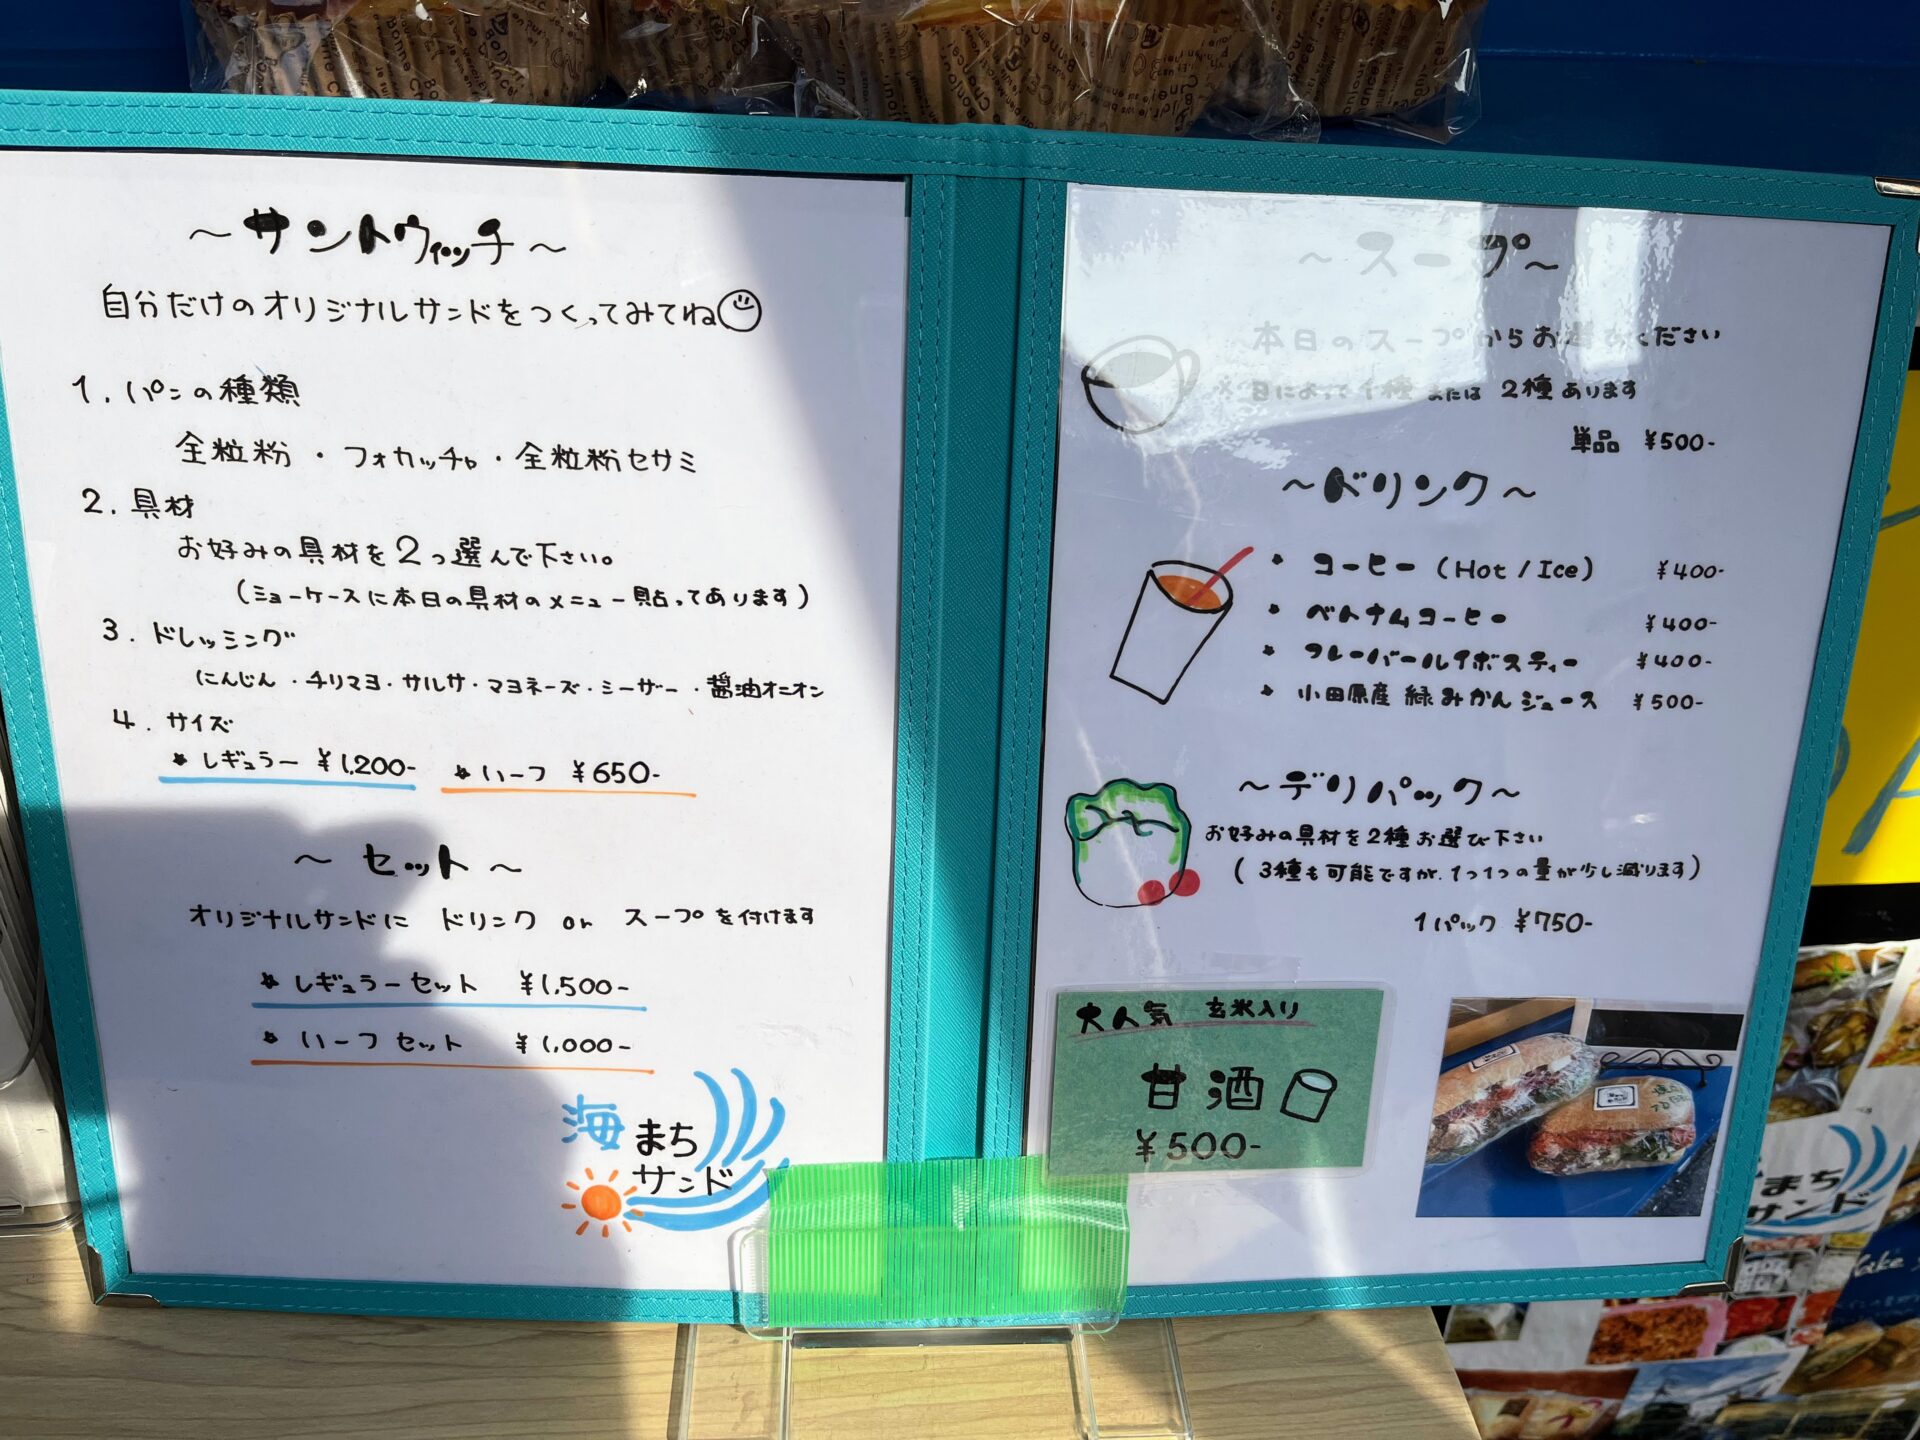 ～サンドウィッチ～
自分だけのオリジナルサンドをつくってみてね
1. パンの種類
全粒粉・フォカッチャ・全粒粉セサミ
2. 具材
お好みの具材を2つ選んで下さい。
(ショーケースに本日の具材のメニュー貼ってあります)
3. ドレッシング
にんじん・チリマヨ・サルサ・マヨネーズ・シーザー・醤油オニオン
4. サイズ
レギュラー ¥1,200- ハーフ ¥650-
～セット～
オリジナルサンドに ドリンク or スープを付けます
レギュラーセット ¥1,500-
ハーフセット ¥1,000-
海まち
サンド
～スープ～
本日のスープからお選びください
※日によって1種または2種あります
単品 ¥500-
～ドリンク～
コーヒー (Hot/Ice) ¥400-
ベトナムコーヒー ¥400-
フレーバールイボスティー ¥400-
小田原産 緑みかんジュース ¥500-
～デリパック～
お好みの具材を2種お選び下さい
(3種も可能ですが、1つ1つの量が少し減ります)
1パック ¥750-
大人気 玄米入り
甘酒
¥500-
まち
サンド